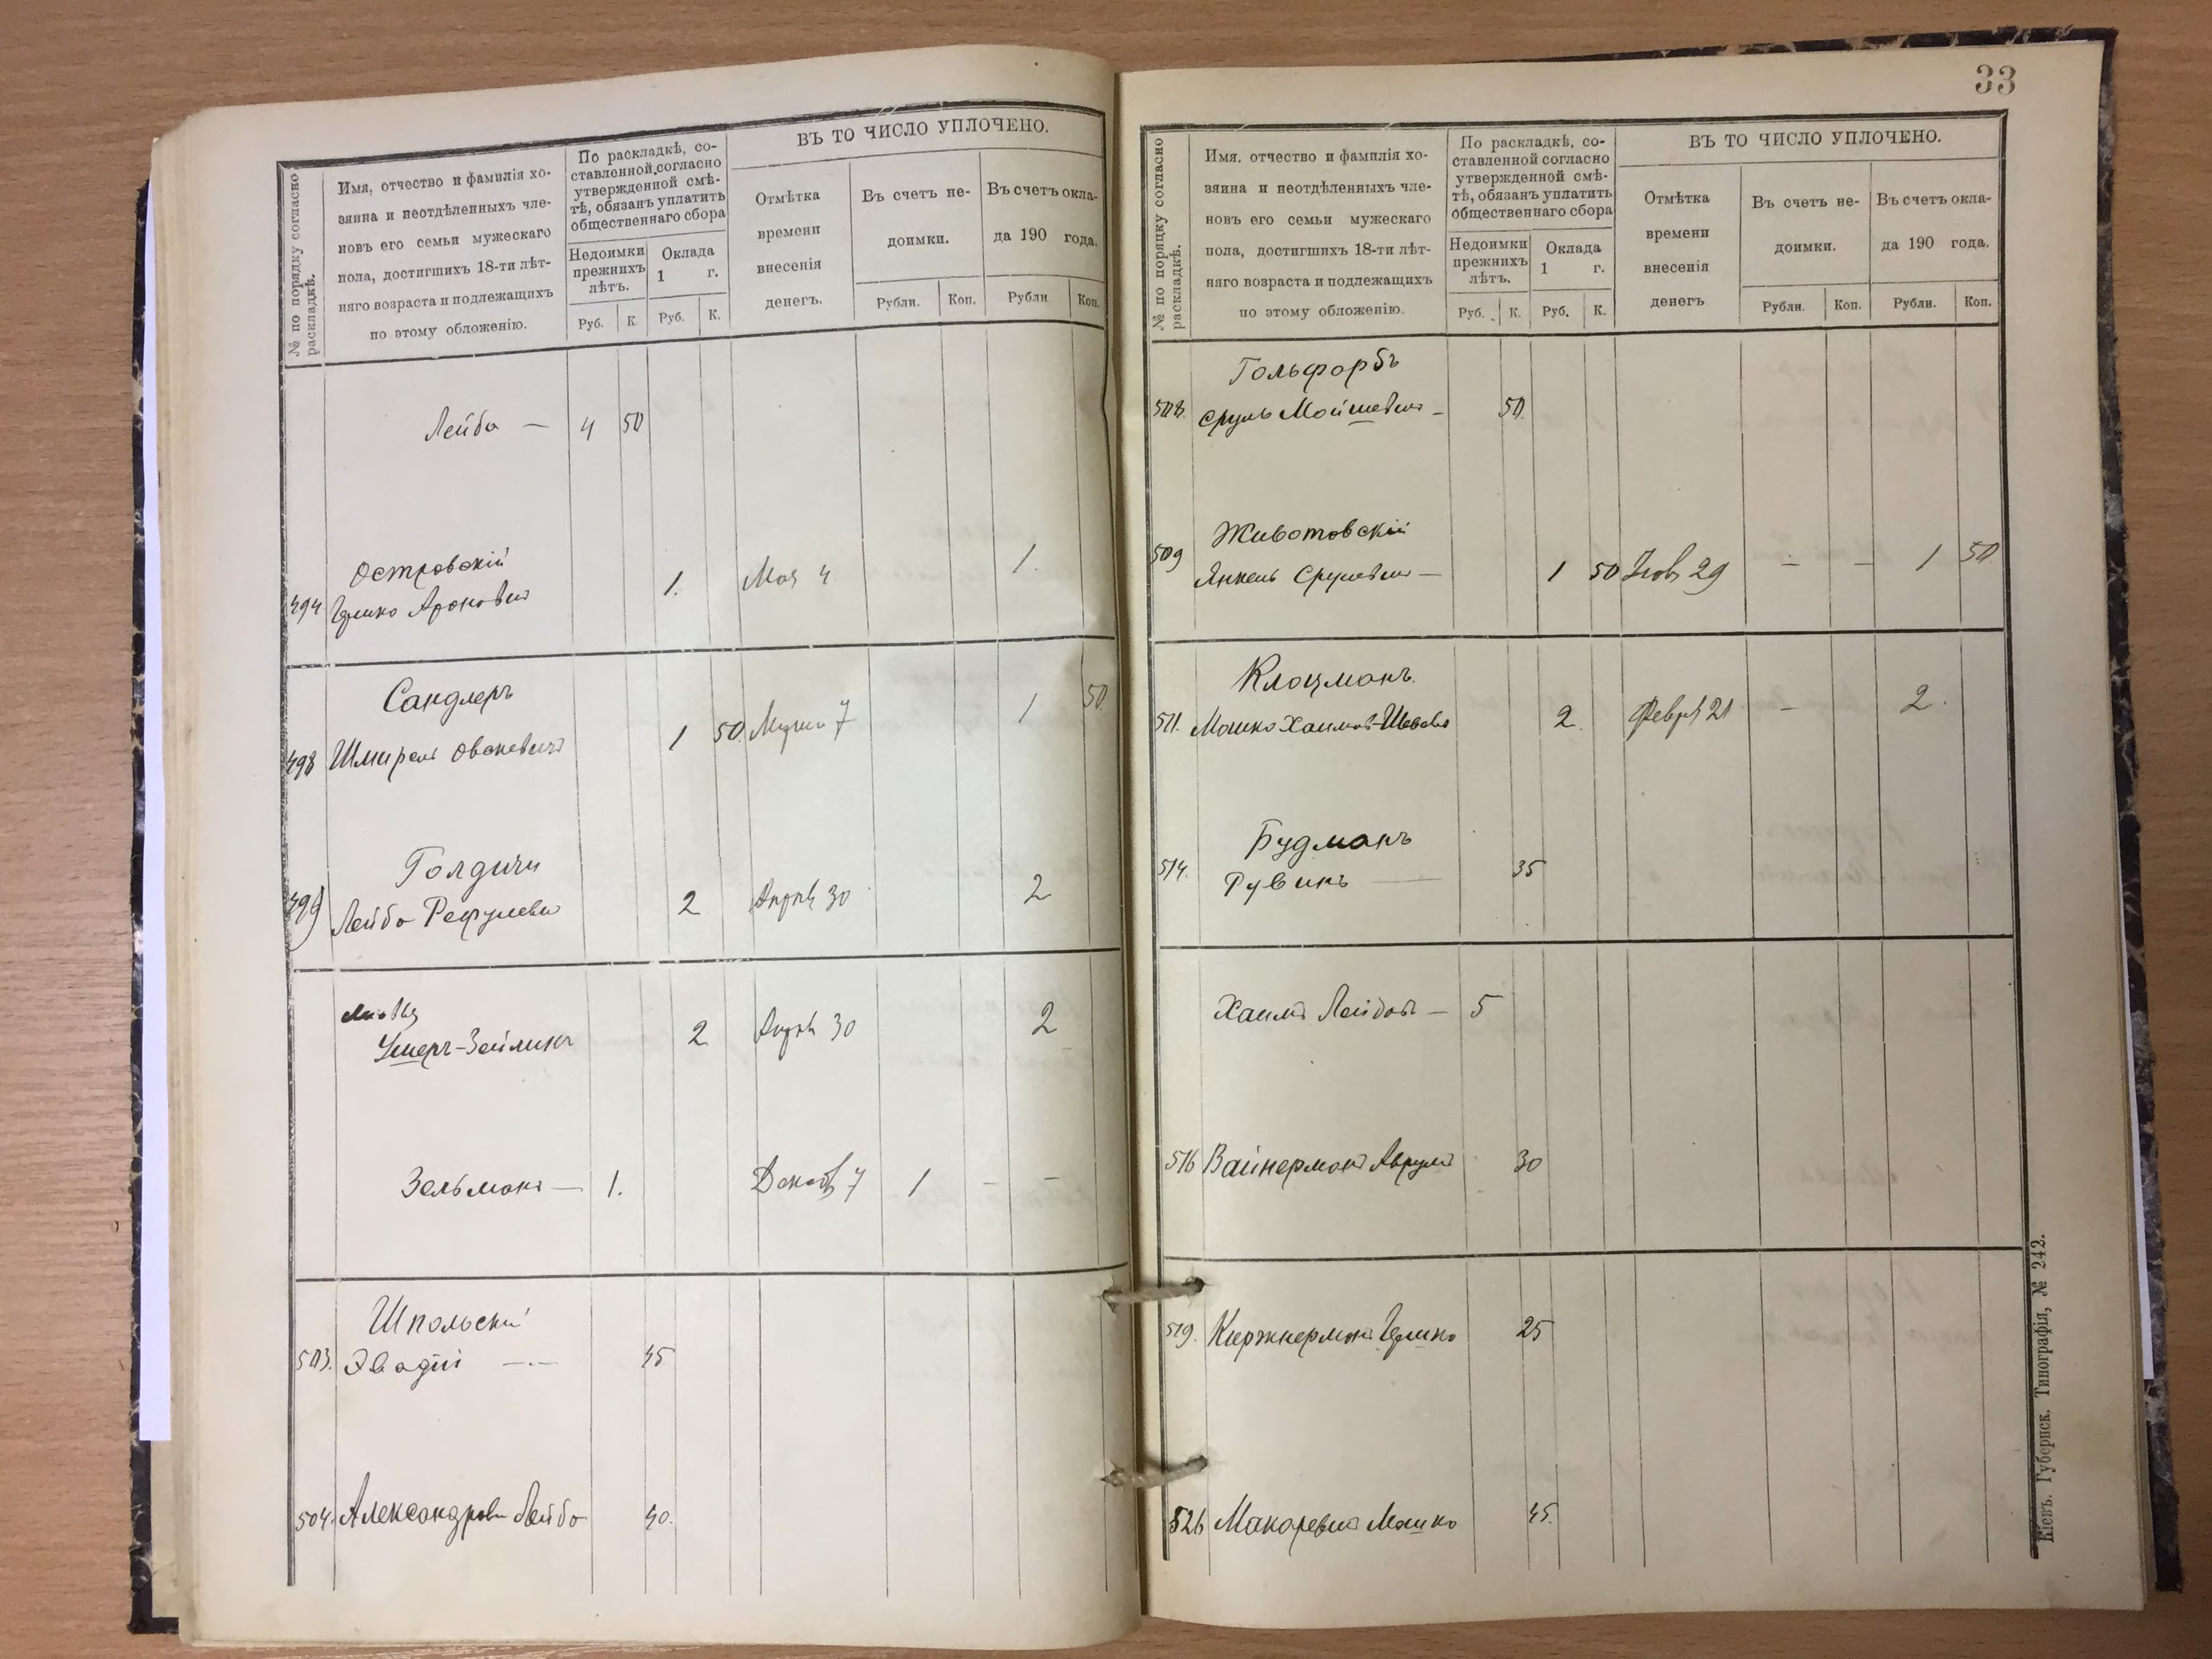 ВЪ ТО ЧИСЛО УПЛОЧЕНО.
№ по порядку согласно
раскладкѣ.
Имя, отчество и фамилія хо-
зяина и неотдѣленныхъ чле-
новъ его семьи мужескаго
пола, достигшихъ 18-ти лѣт-
няго возраста и подлежащихъ
по этому обложенію.
По раскладкѣ, со-
ставленной согласно
утвержденной смѣ-
тѣ, обязанъ уплатить
общественнаго сбора
Недоимки
прежнихъ
лѣтъ.
Оклада
1 г.
Руб. К. Руб. К.
Отмѣтка
времени
внесенія
денегъ.
Въ счетъ не-
доимки.
Рубли. Коп.
Въ счетъ окла-
да 190 года.
Рубли Коп.
Лейба — 4 50
Островскій
494 Гершко Ароновичъ 1. Мая 4 1.
Сандлеръ
498 Шмирель 1 50 7 1 50
499 Лейба 2 Апрѣ 30 2
Ушеръ-Зейликъ 2 Апрѣ 30 2
Зельманъ — 1. Декаб 7 1 - -
Шпольскій
503. 45
504. Лейба 40.
33
ВЪ ТО ЧИСЛО УПЛОЧЕНО.
№ по порядку согласно
раскладкѣ.
Имя. отчество и фамилія хо-
зяина и неотдѣленныхъ чле-
новъ его семьи мужескаго
пола, достигшихъ 18-ти лѣт-
няго возраста и подлежащихъ
по этому обложенію.
По раскладкѣ, со-
ставленной согласно
утвержденной смѣ-
тѣ, обязанъ уплатить
общественнаго сбора
Недоимки
прежнихъ
лѣтъ.
Оклада
1 г.
Руб. К. Руб. К.
Отмѣтка
времени
внесенія
денегъ
Въ счетъ не-
доимки.
Рубли. Коп.
Въ счетъ окла-
да 190 года.
Рубли. Коп.
Гольфарбъ
508. Сруль Мойшевичъ - 50.
Животовскій
509 Янкель Срулевичъ — 1 50 Нояб 29 - - 1 50
Клоцманъ.
511. Мошко 2. Февр 21 - 2.
Будманъ
514. Рувинъ — 35
Хаимъ Лейбовъ — 5
516 Вайнерманъ Аврумъ 30
519. Гершко 25
526 Макаревичъ Мошко 45.
Кіевъ. Губернск. Типографія, № 242.